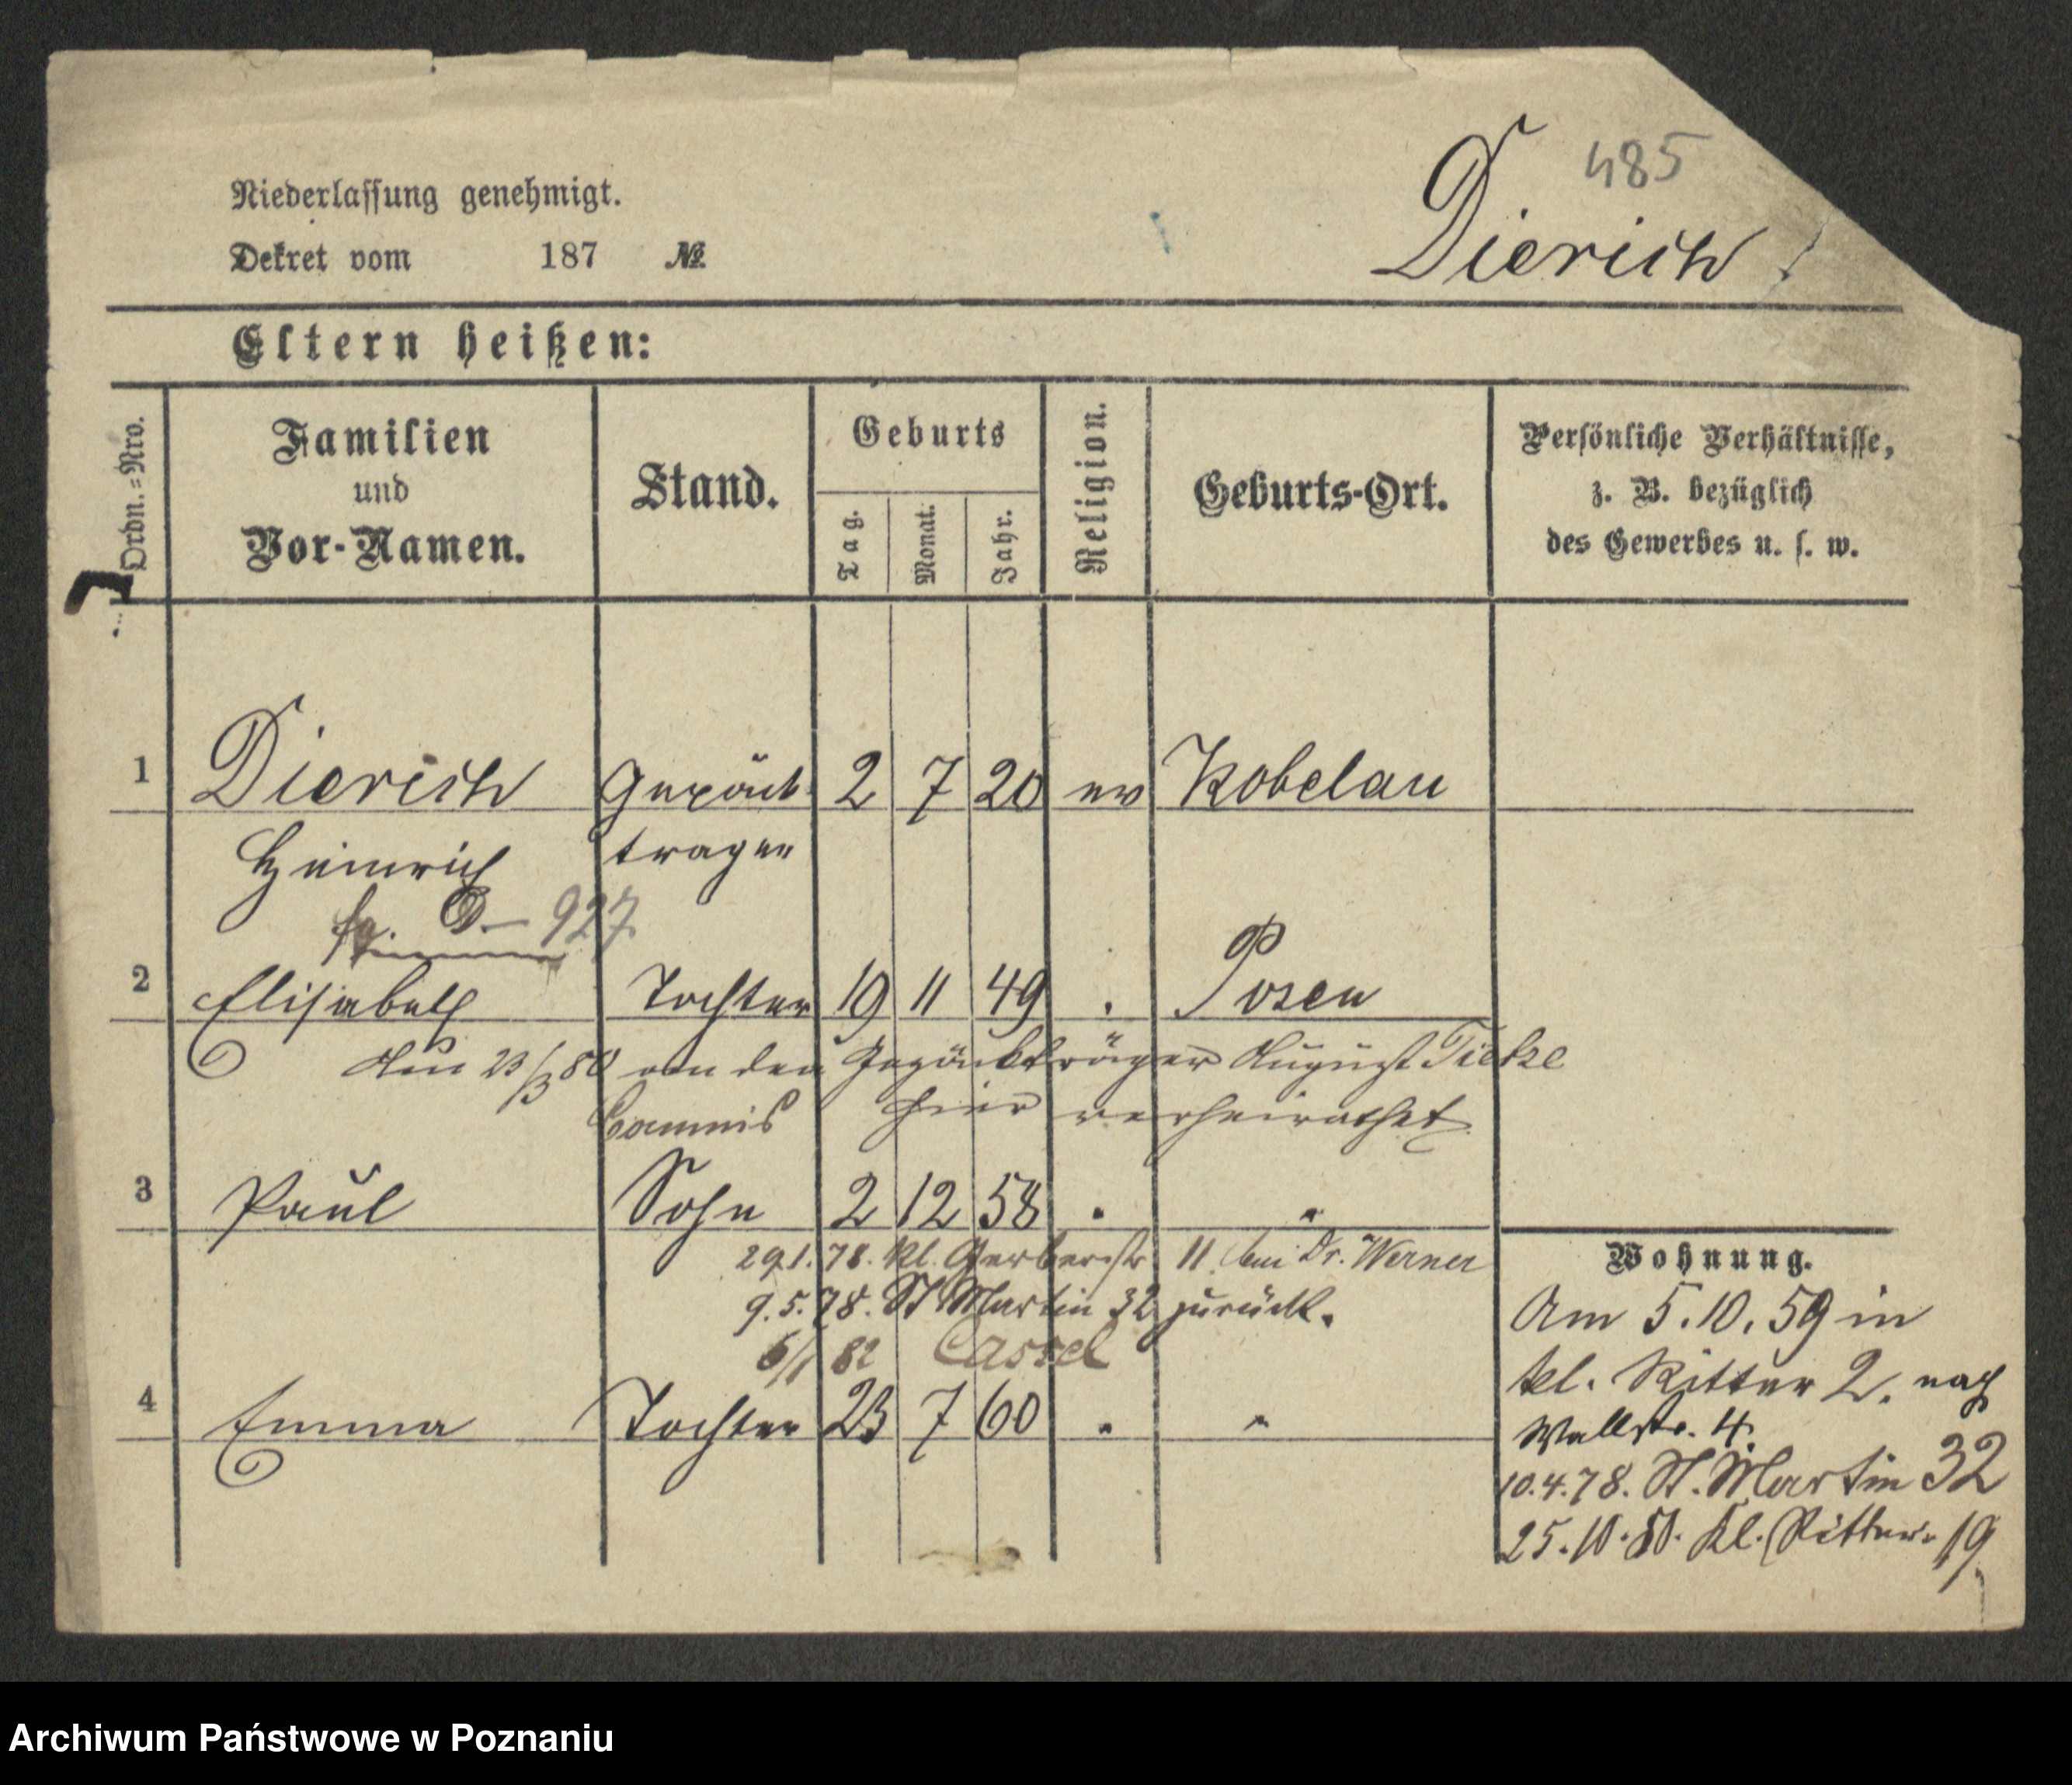 485
Dierich
Niederlassung genehmigt.
Dekret vom 187 №
Eltern heißen:
Ordn.=Nro.
Familien
und
Vor-Namen.
Stand.
Geburts
Tag.
Monat.
Jahr.
Religion.
Geburts-Ort.
Persönliche Verhältnisse,
z. B. bezüglich
des Gewerbes u. s. w.
1 Dierich Gepäck 2 7 20 ev Kobelau
Heinrich träger
D– 927
2 Elisabeth Tochter 19 11 49 Posen
23/3 80 an den Gepäckträger August Tietze
hier verheirathet
Commis
3 Paul Sohn 2 12 58 "
29.1.78. kl. Gerberstr 11 bei Dr. Werner
9.5.78. St Martin 32 zurück.
6/1 82 Cassel
4 Emma Tochter 23 7 60 "
Wohnung.
Am 5.10.59 in
kl. Ritter 2. nach
Wallstr. 4.
10.4.78. St. Martin 32
25.10. Kl. Ritter. 19
Archiwum Państwowe w Poznaniu